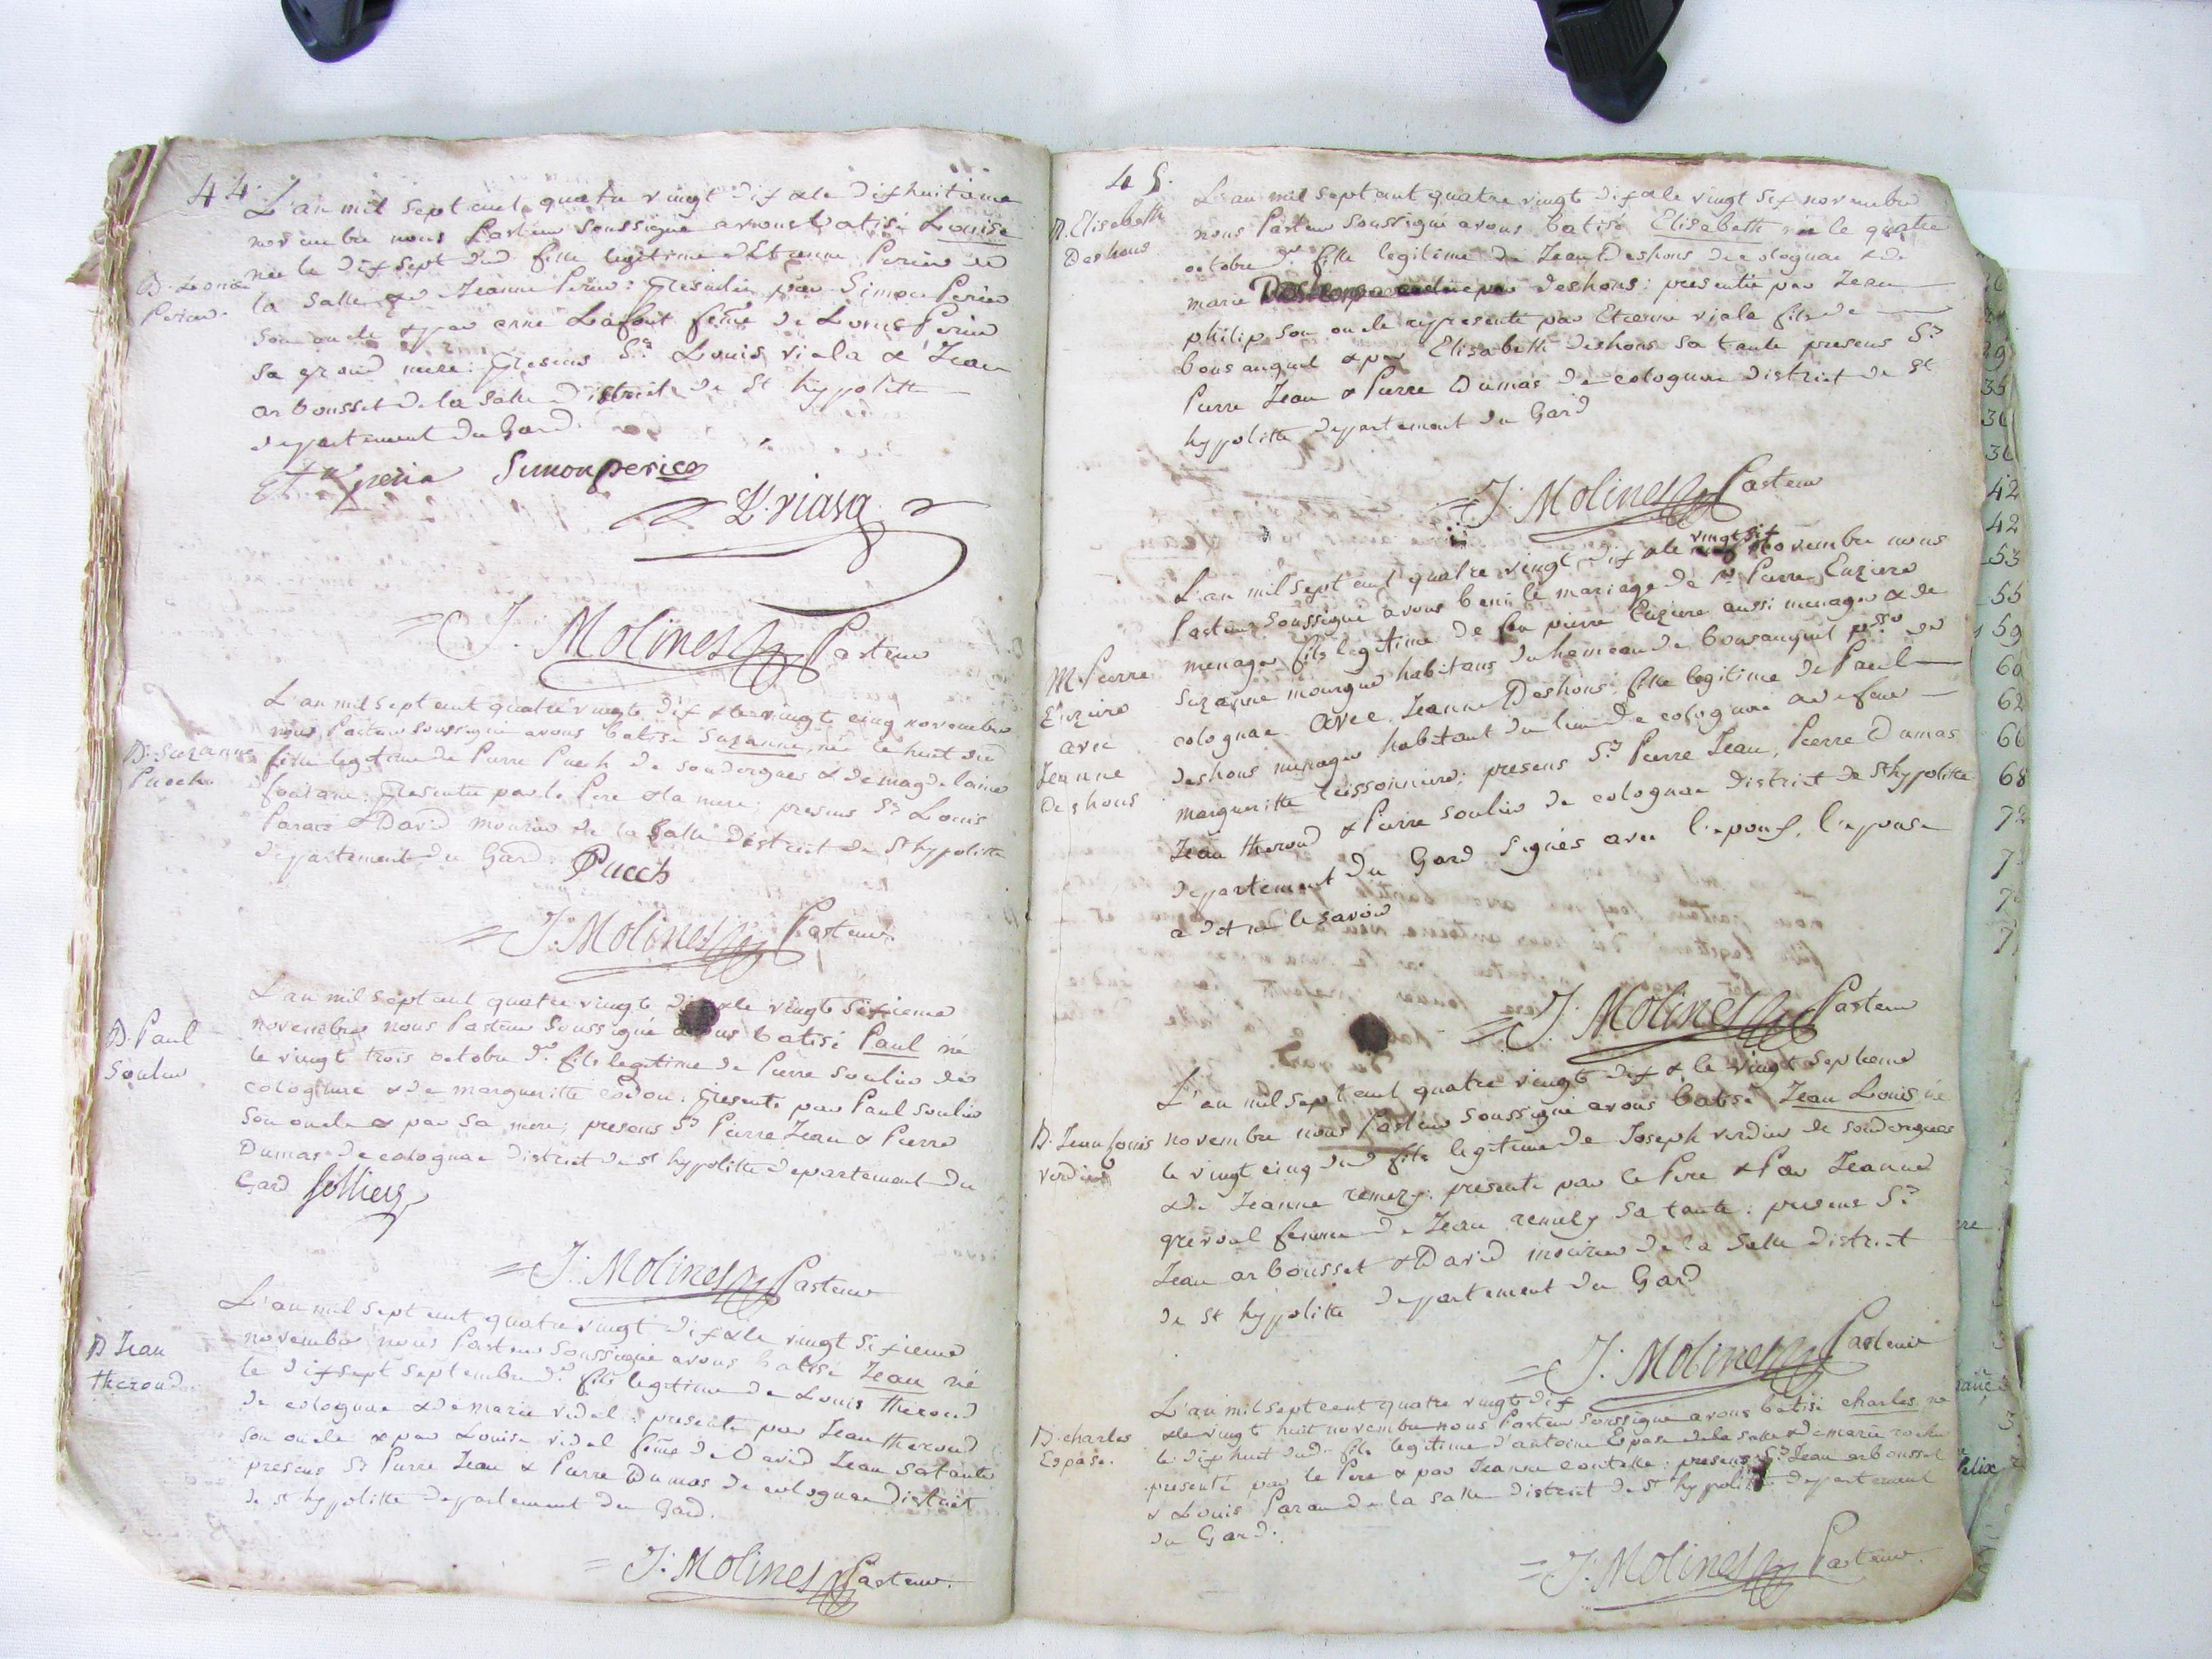 44.
L'an mil sept cent quatre vingt dix & le dixhuitieme
novembre nous Pasteur soussigné avons batisé Louise
B. Louise
Perier.
née le dixsept dud. fille legitime d'Etienne Perier de
la Salle & de Jeanne Perier: presentée par Simon Perier
son oncle & par anne Lafont feme de Louis Perier
sa grand mere: presens Srs Louis viala & Jean
arbousset de la Salle District de St hyppolitte
departement du Gard.
Simon perier
L. viala
= J. Molines Pasteur
L'an mil sept cent quatre vingts dix & le vingt cinq novembre
B. Suzanne
Puech.
nous Pasteur soussigné avons batisé Suzanne, née le huit dud
fille legitime de Pierre Puech de soudorgues & de magdelaine
fontane: presentée par le Pere & la mere; presens Srs Louis
Paran & David mourier de la Salle District de St hyppolitte
departement du Gard.
Puech
= J. Molines Pasteur.
B. Paul
Soulier
L'an mil sept cent quatre vingts dix & le vingt sixieme
novembre nous Pasteur soussigné avons batisé Paul né
le vingt trois octobre dr. fils legitime de Pierre soulier de
colognac & de margueritte : presenté par Paul soulier
son oncle & par sa mere; presens Srs Pierre Jean & Pierre
Dumas de colognac District de St hyppolitte departement du
Gard
= J. Molines Pasteur
B. Jean
therond.
L'an mil sept cent quatre vingt dix & le vingt sixieme
novembre nous Pasteur soussigné avons batisé Jean né
le dixsept septembre dr. fils legitime de Louis therond
de colognac & de marie vidal: presenté par Jean therond
son oncle & par Louise vidal feme de David Jean sa tante
presens Srs Pierre Jean & Pierre Dumas de colognac District
de St hyppolitte departement du Gard.
= J. Molines Pasteur.
45.
B. Elisabeth
Deshons
L'an mil sept cent quatre vingt dix & le vingt six novembre
nous Pasteur soussigné avons batisé Elisabeth née le quatre
octobre dr. fille legitime de Jean Deshons de colognac & de
marie deshons: presentée par Jean
philip son oncle representé par Etienne viala fils de
bousanquet & par Elisabeth deshons sa tante presens Srs
Pierre Jean & Pierre Dumas de colognac District de St
hyppolitte departement du Gard
= J. Molines Pasteur
vingt six
L'an mil sept cent quatre vingt dix & le novembre nous
Pasteur soussigné avons beni le mariage de Sr Pierre Euziere
M. Pierre
Euziere
avec
Jeanne
Deshons
menager fils legitime de feu pierre Euziere aussi menager & de
Suzanne mourgue habitans du hameau de bousanquet psse de
colognac avec Jeanne Deshons fille legitime de Paul
deshons menager habitant du lieu de colognac & de feue
margueritte teissonniere; presens Srs Pierre Jean, Pierre Dumas
Jean therond & Pierre soulier de colognac District de St hypolitte
departement du Gard signés avec l'epoux, l'epouse
a dit ne le savoir
= J. Molines Pasteur
L'an mil sept cent quatre vingts dix & le vingt septieme
B. Jean Louis
verdier
novembre nous Pasteur soussigné avons batisé Jean Louis né
le vingt cinq dud fils legitime de Joseph verdier de soudorgues
& de Jeanne remezy: presenté par le Pere & Par Jeanne
greval femme de Jean remezy sa tante: presens Srs
Jean arbousset & David mourier de la Salle District
de St hyppolitte departement du Gard
= J. Molines Pasteur
L'an mil sept cent quatre vingts dix
B. charles
Espase.
& le vingt huit novembre nous Pasteur soussigné avons batisé charles né
le dix huit dud. fils legitime d'antoine Espase de la salle & de marie roche
presenté par le Pere & par Jeanne : presens Srs Jean arbousset
& Louis Paran de la Salle District de St hyppolitte departement
du Gard.
= J. Molines Pasteur.